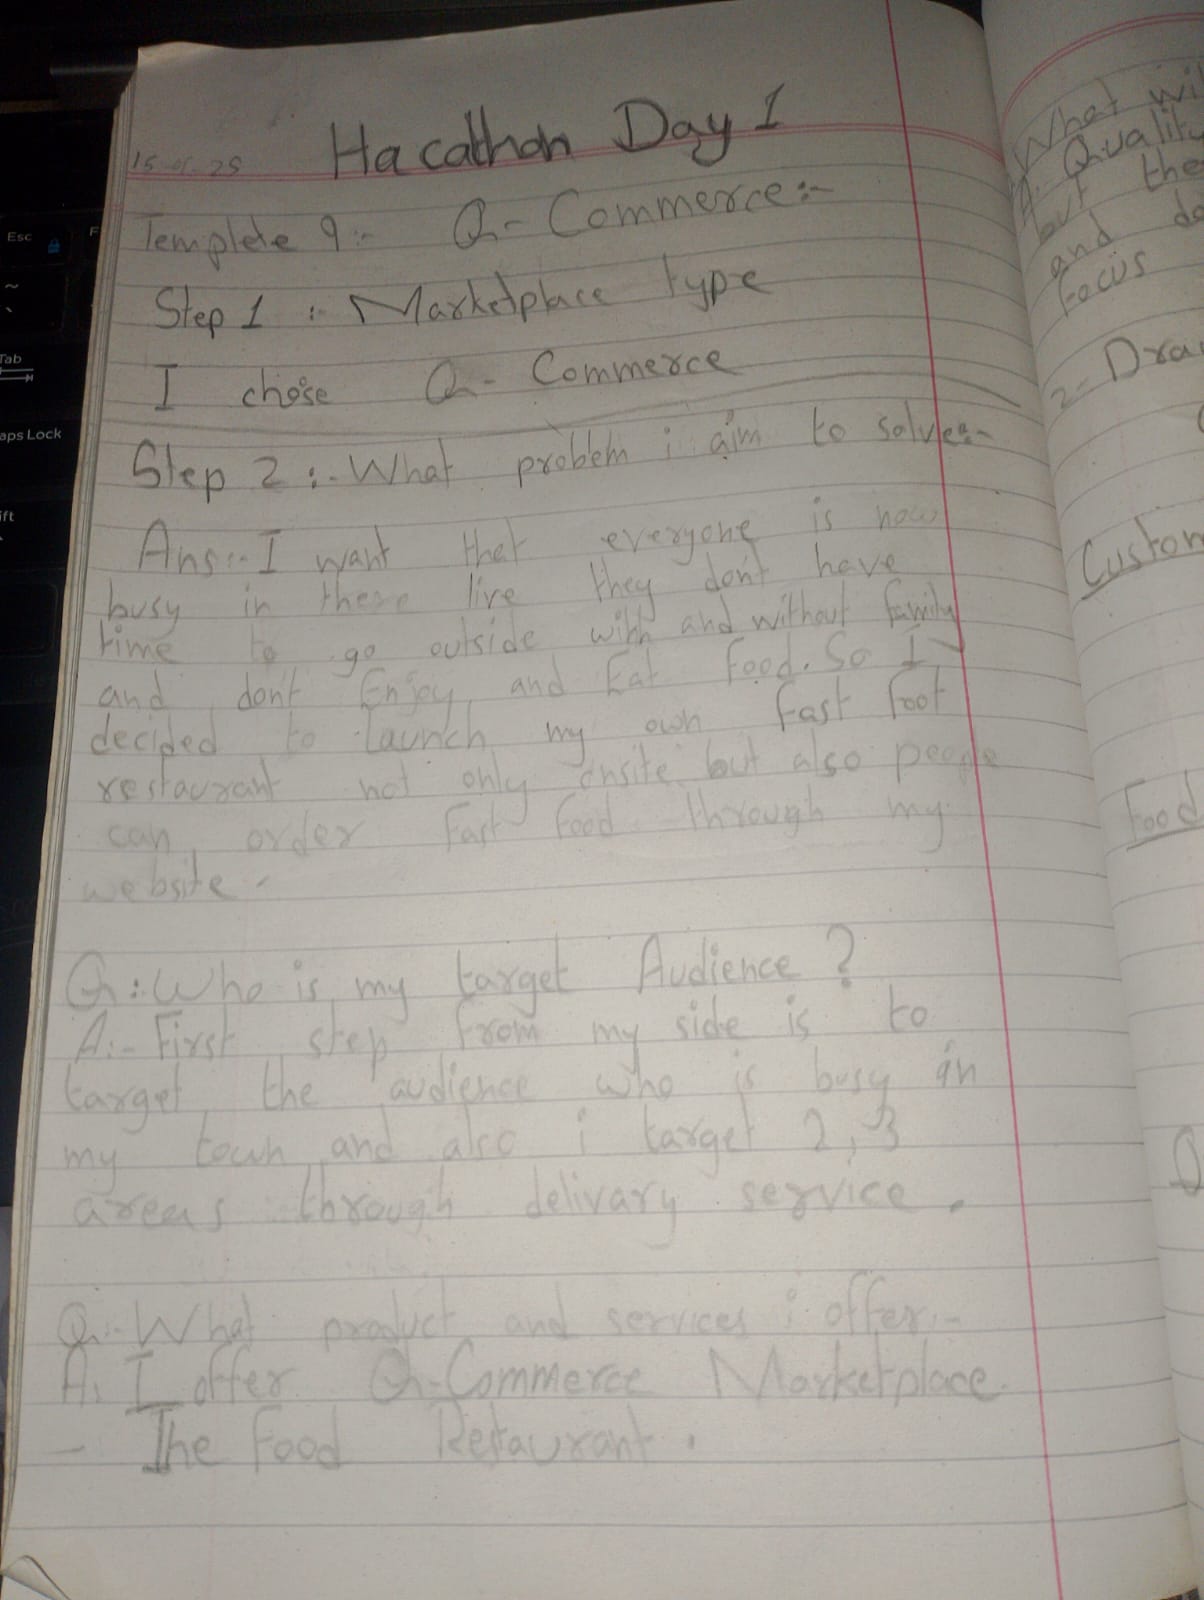 Hacathon Day 1
15-01-25
Templete 9:- Q-Commerce:-
Step 1 :- Marketplace type
I chose Q-Commerce
Step 2 :- What problem i aim to solve:-
Ans:- I want that everyone is now
busy in there live they don't have
time to go outside with and without family
and don't Enjoy and Eat Food. So I
decided to launch my own fast foot
restaurant not only onsite but also people
can order Fast Food through my
website.
Q:- Who is my target Audience ?
A:- First step from my side is to
target the audience who is busy in
my town and also i target 2, 3
areas through delivary service.
Q:- What product and services i offer:-
A: I offer Q-Commerce Marketplace
- The Food Restaurant.
What
A. Qualit
but the
and
Focus
2- Draw
Custom
Food
Esc
F
~
Tab
aps Lock
ift